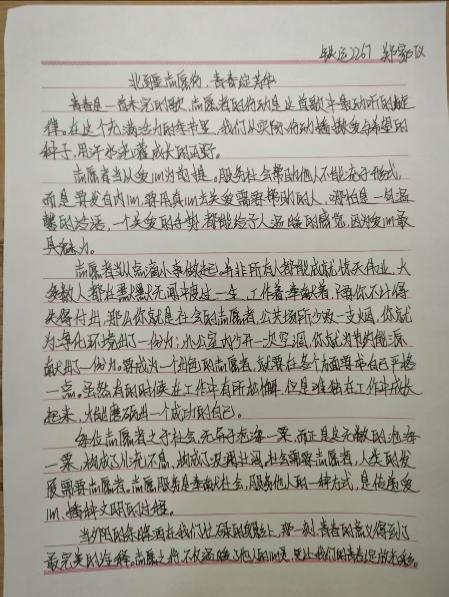 铁运2267 郑家仪
志愿行,青春绽芳华
青春是一首未完的歌,志愿者的行动是这首歌中最动听的旋
律。在这个充满活力的季节里,我们从实际行动播撒爱与希望的
种子,用汗水浇灌成长的田野。
志愿者当从爱心为内核。服务社会帮助他人不能在于形式,
而是要发自内心,要用真心去关爱需要帮助的人,哪怕是一句温
馨的话语,一个关爱的手势都能给予人温暖的感觉,因为爱心最
具魅力。
志愿者当从点滴小事做起。并非所有人都能成就惊天伟业,大
多数人都在默默无闻中度过一生,工作着奉献着,只要你不计得
失得付出,那么你就是社会的志愿者,公共场所少吸一支烟,你就
为净化环境出了一份力;办公室内少开一次空调,你就为节约能源
献出了一份力。要成为一个出色的志愿者,就要在各个方面要求自己严格
一点。虽然有的时候在工作中有所松懈,但是谁独在工作中成长
起来,才能磨砺出一个成功的自己。
每位志愿者之于社会,无异于沧海一粟,而正是这无数的沧海
一粟,构成了川流不息,构成了波澜壮阔。社会需要志愿者,人类的发
展需要志愿者,志愿服务是奉献社会,服务他人的一种方式,是传递爱
心,播种文明的过程。
当夕阳的余晖洒在我们忙碌的身影上,那一刻,青春的意义得到了
最完美的诠释。志愿之行,不仅温暖了他人的心灵,更让我们的青春绽放光彩。